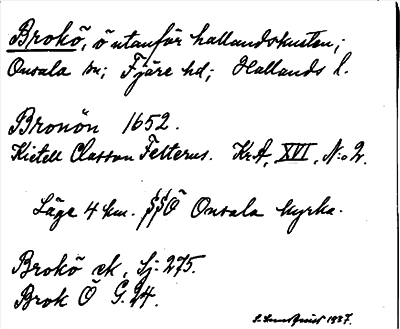 Brokö, ö utanför hallandskusten;
Onsala sn; Fjäre hd; Hallands l.
Bronön 1652.
Kietell Classon Felterus. KrA, XVI, N:o 2.
Läge 4 km. SSÖ Onsala kyrka.
Brokö ek, Sj: 275.
Brok Ö G. 24.
1937.